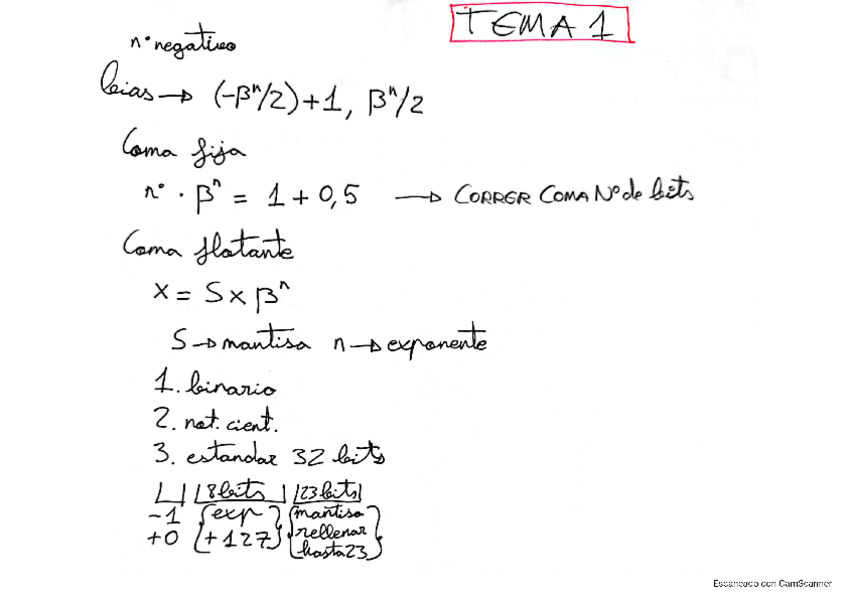 TEMA 1
nº negativo
bias → (-βⁿ/2)+1, βⁿ/2
Coma fija
nº · βⁿ = 1 + 0,5 → CORRER COMA Nº de bits
Coma flotante
X = S x βⁿ
S → mantisa n → exponente
1. binario
2. not. cient.
3. estandar 32 bits
8bits 23bits
-1 exp mantisa
+0 +127 rellenar
hasta 23
Escaneado con CamScanner